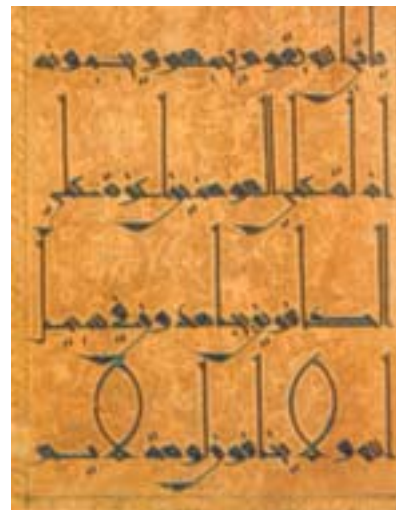 ياتي الله بقوم يحبهم ويحبونه
اذلة على المومنين اعزة على
الكافرين يجاهدون في سبيل
الله ولا يخافون لومة لايم